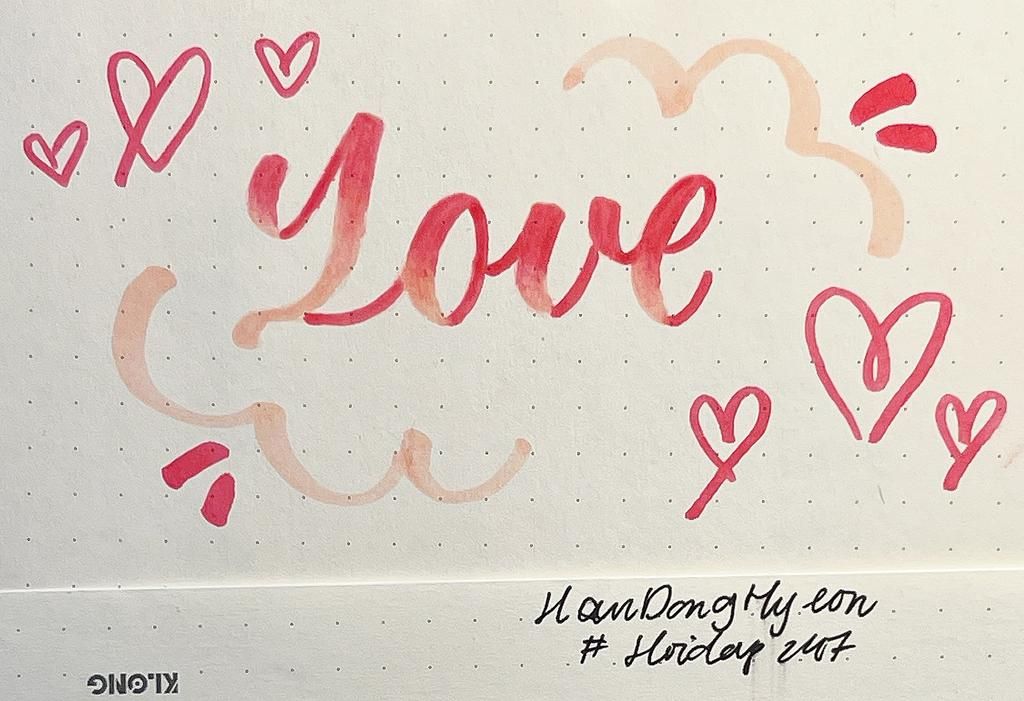 Love
HanDongMyeon
# Hoidap 2407
KLONG